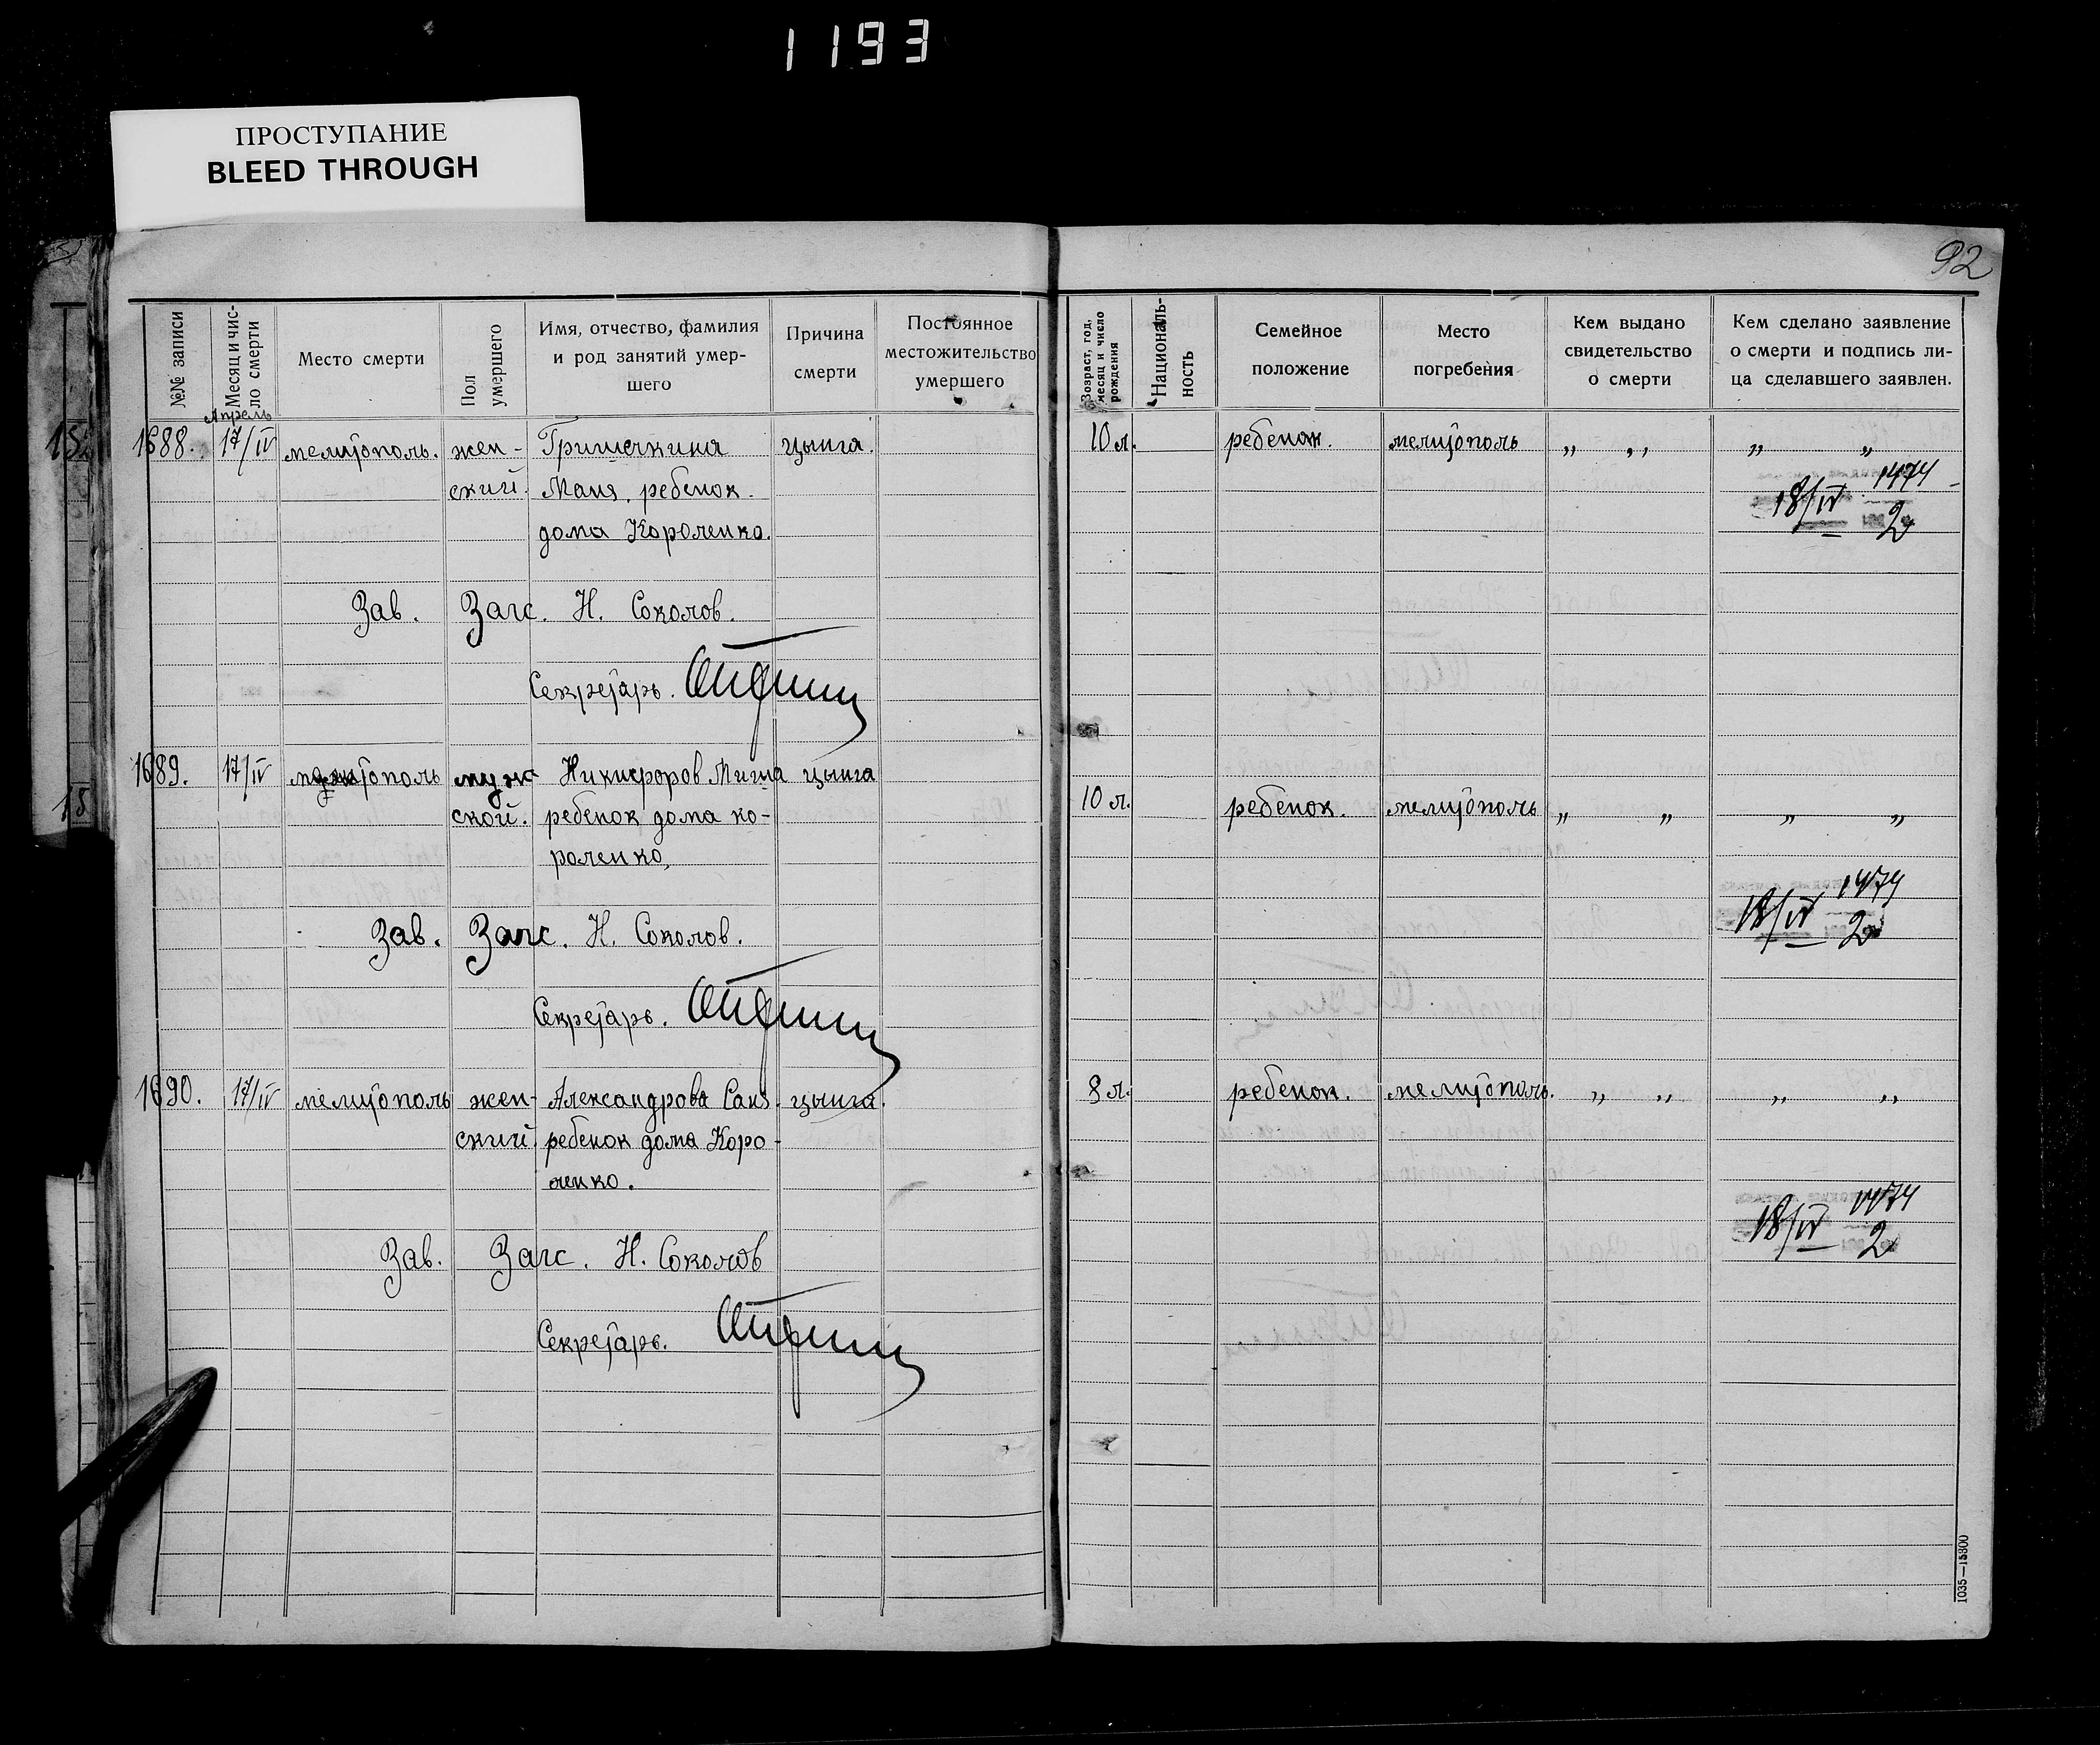 1193
ПРОСТУПАНИЕ
BLEED THROUGH
92
№№ записи
Месяц и чис-
ло смерти
Место смерти
Пол
умершего
Имя, отчество, фамилия
и род занятий умер-
шего
Причина
смерти
Постоянное
местожительство
умершего
Возраст, год,
месяц и число
рождения
Националь-
ность
Семейное
положение
Место
погребения
Кем выдано
свидетельство
о смерти
Кем сделано заявление
о смерти и подпись ли-
ца сделавшего заявлен.
Апрель
1688. 17/IV мелитополь. жен- Гришечкина цынга. 10 л. ребенок. мелитополь „ „ „ „
ский. Маня. ребенок.
дома Короленко.
18/IV 1474
2
Зав. Загс. Н. Соколов.
Секретарь.
1689. 17/IV мелитополь муж Никифоров Миша цынга 10 л. ребенок. мелитополь „ „ „ „
ской. ребенок дома ко-
роленко,
18/IV 1474
2
Зав. Загс. Н. Соколов.
Секретарь.
1690. 17/IV мелитополь жен- Александрова Саня. цынга. 8 л. ребенок. мелитополь. „ „ „ „
ский. ребенок дома Коро-
ленко.
18/IV 1474
2
Зав. Загс. Н. Соколов
Секретарь.
1035—15300